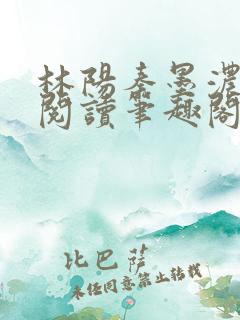 林陽秦墨濃
閱讀筆趣閣
比巴薩
未任同意禁止转载